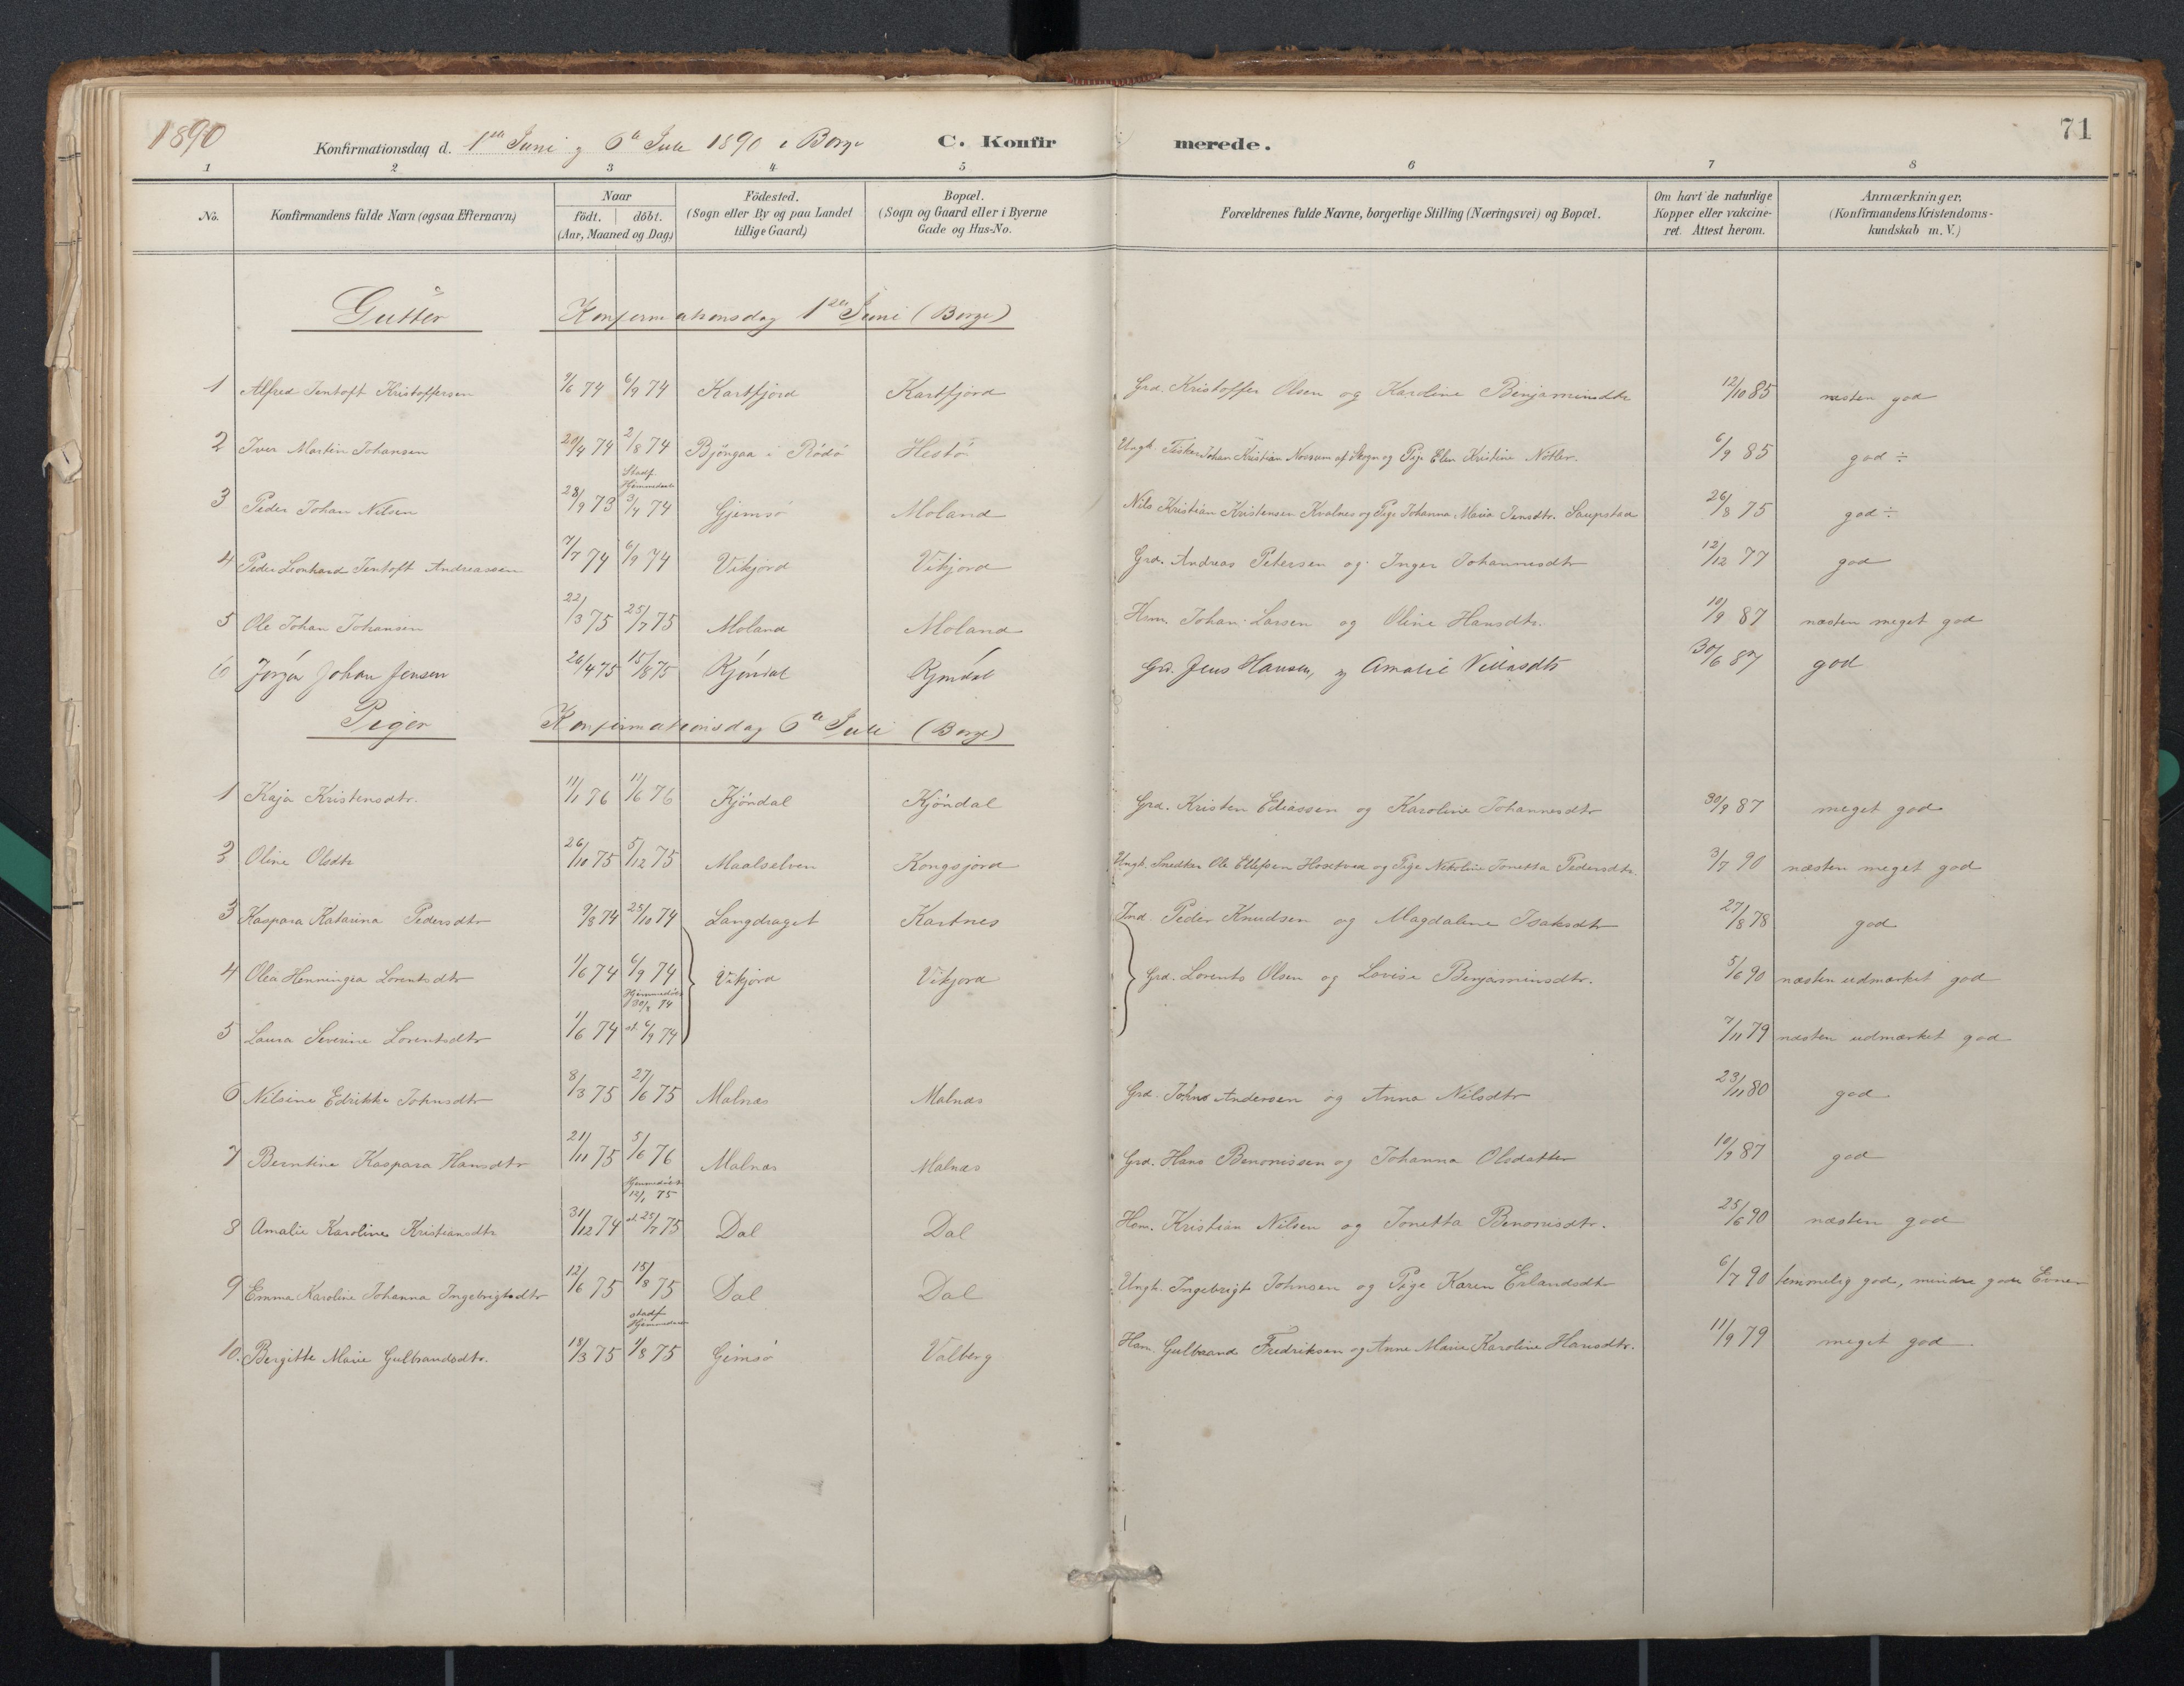 1890 Konfirmationsdag d. 1ste Juni og 6te Juli 1890 i Borge C. Konfirmerede. 71
1 2 3 4 5 6 7 8
No. Konfirmandens fulde Navn (ogsaa Efternavn) Naar födt. döbt. (Aar, Maaned og Dag) Födested. (Sogn eller By og paa Landet tillige Gaard) Bopæl. (Sogn og Gaard eller i Byerne Gade og Hus-No. Forældrenes fulde Navne, borgerlige Stilling (Næringsvei) og Bopæl. Om havt de naturlige Kopper eller vakcineret. Attest herom. Anmærkninger. (Konfirmandens Kristendomskundskab m. V.)
Gutter Konfirmationsdag 1ste Juni (Borge)
1 Alfred Jentoft Kristoffersen 9/6 74 6/9 74 Kartfjord Kartfjord Grd. Kristoffer Olsen og Karoline Benjaminsdtr 12/10 85 næsten god
2 Iver Martin Johansen 20/4 74 2/8 74 Bjöngaa i Rödö Hestö Ungk. Fisker Johan Kristian Norum af Skogn og Pige Elen Kristine 6/9 85 god ÷
3 Peder Johan Nilsen 28/9 73 Stadf. Hjemmedaab 3/4 74 Gjemsö Moland Nils Kristian Kristensen Kvalnes og Pige Johanna Maria Jensdtr. Saupstad 26/8 75 god ÷
4 Peder Leonhard Jentoft Andreassen 7/7 74 6/9 74 Vikjord Vikjord Grd. Andreas Petersen og Inger Johannesdtr 12/12 77 god
5 Ole Johan Johansen 22/3 75 25/7 75 Moland Moland Hsm. Johan Larsen og Oline Hansdtr. 10/9 87 næsten meget god
6 Jörgen Johan Jensen 26/4 75 15/8 75 Kjöndal Kjöndal Grd. Jens Hansen, og Amalie Villasdtr 30/6 87 god
Piger Konfirmationsdag 6te Juli (Borge)
1 Kaja Kristensdtr. 11/1 76 11/6 76 Kjöndal Kjöndal Grd. Kristen Ediassen og Karoline Johannesdtr 30/9 87 meget god
2 Oline Olsdtr 26/10 75 5/12 75 Maalselven Kongsjord Ungk. Snedker Ole Ellefsen Hosetved og Pige Nikoline Jonetta Pedersdtr. 3/7 90 næsten meget god
3 Kaspara Katarina Pedersdtr 9/8 74 25/10 74 Langdraget Kartnes Ind. Peder Knudsen og Magdaline Isaksdtr 27/8 78 god
4 Olea Henningea Lorentsdtr 1/6 74 6/9 74 Vikjord Vikjord Grd. Lorents Olsen og Lovise Benjaminsdtr. 5/6 90 næsten udmærket god
5 Laura Severine Lorentsdtr 1/6 74 Hjemmedöbt 30/8 74 st. 6/9 74 7/11 79 næsten udmærket god
6 Nilsine Edrikke Johnsdtr 8/3 75 27/6 75 Malnæs Malnæs Grd. Johns Andersen og Anna Nilsdtr 23/11 80 god
7 Berntine Kaspara Hansdtr 21/11 75 5/6 76 Malnæs Malnæs Grd. Hans Benonissen og Johanna Olsdatter 10/9 87 god
8 Amalie Karoline Kristiansdtr 31/12 74 Hjemmedöbt 12/1 75 st. 25/7 75 Dal Dal Hsm. Kristian Nilsen og Jonetta Benonisdtr. 25/6 90 næsten god
9 Emma Karoline Johanna Ingebrigtsdtr 12/6 75 15/8 75 Dal Dal Ungk. Ingebrigt Johnsen og Pige Karen Erlandsdtr 6/7 90 temmelig god, mindre gode Evner
10. Bergitte Marie Gulbrandsdtr. 18/3 75 stadf. Hjemmedaab 1/8 75 Gimsö Valberg Hsm. Gulbrand Fredriksen og Anne Marie Karoline Hansdtr. 11/9 79 meget god